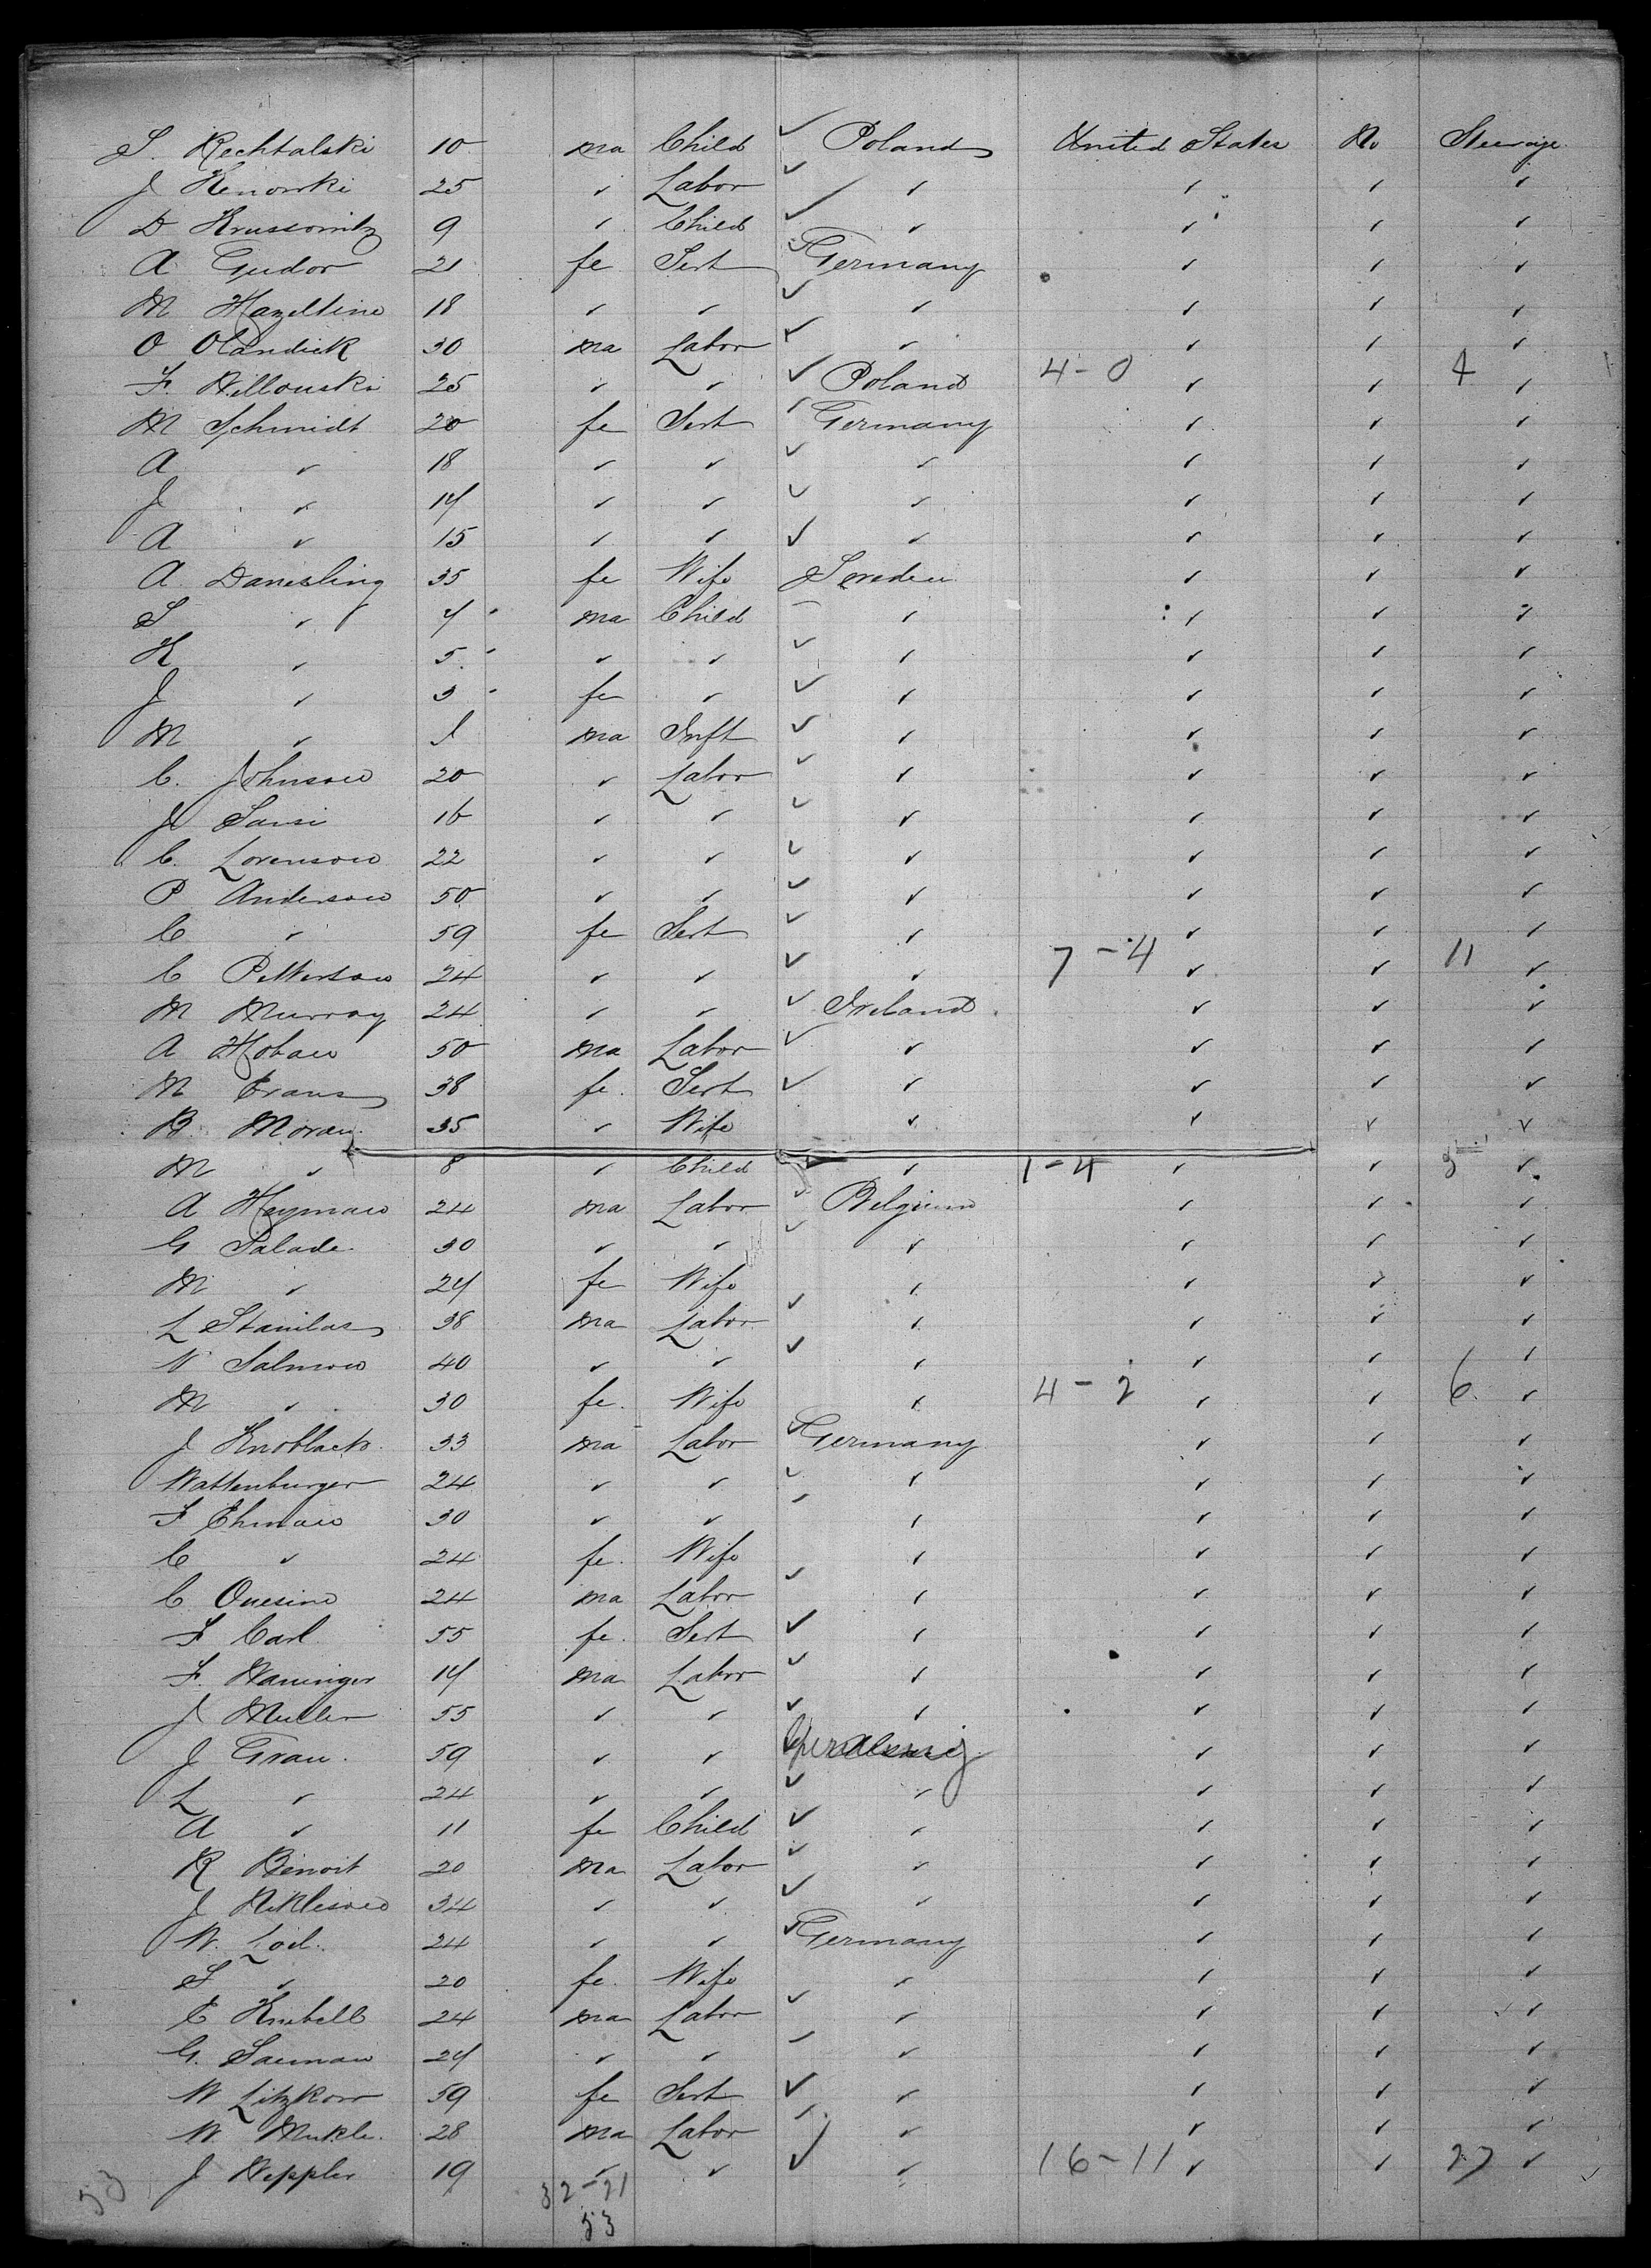 S. Rechtalski 10 ma Child ✓ Poland United States No Steerage
J Kenowski 25 ✓ Labor ✓ ✓ ✓ ✓ ✓
D Krussowitz 9 ✓ Child ✓ ✓ ✓ ✓ ✓
A Gudor 21 fe Sert ✓ Germany ✓ ✓ ✓
M Hazeltine 18 ✓ ✓ ✓ ✓ ✓ ✓ ✓
O Olandick 30 ma Labor ✓ ✓ ✓ ✓ ✓
F. Willouski 25 ✓ ✓ ✓ Poland 4-0 ✓ ✓ 4 ✓
M Schmidt 20 fe Sert ✓ Germany ✓ ✓ ✓
A ✓ 18 ✓ ✓ ✓ ✓ ✓ ✓ ✓
J ✓ 14 ✓ ✓ ✓ ✓ ✓ ✓ ✓
A ✓ 15 ✓ ✓ ✓ ✓ ✓ ✓ ✓
A Danesling 35 fe Wife Sweden ✓ ✓ ✓
S ✓ 4 ma Child ✓ ✓ ✓ ✓
K ✓ 5 ✓ ✓ ✓ ✓ ✓ ✓ ✓
J ✓ 3 fe ✓ ✓ ✓ ✓ ✓ ✓
M ✓ 1 ma Inft ✓ ✓ ✓ ✓ ✓
C. Johnson 20 ✓ Labor ✓ ✓ ✓ ✓ ✓
J 16 ✓ ✓ ✓ ✓ ✓ ✓ ✓
C. Lorenson 22 ✓ ✓ ✓ ✓ ✓ ✓ ✓
P Anderson 50 ✓ ✓ ✓ ✓ ✓ ✓ ✓
C ✓ 59 fe Sert ✓ ✓ ✓ ✓ ✓
C Petterson 24 ✓ ✓ ✓ ✓ 7-4 ✓ ✓ 11 ✓
M Murray 24 ✓ ✓ ✓ Ireland ✓ ✓ ✓
A Hoban 50 ma Labor ✓ ✓ ✓ ✓ ✓
M Evans 38 fe. Sert ✓ ✓ ✓ ✓ ✓
B. Moran 35 ✓ Wife ✓ ✓ ✓ ✓
M ✓ 8 ✓ Child ✓ ✓ 1-4 ✓ ✓ 5 ✓
A Heyman 24 ma Labor ✓ Belgium ✓ ✓ ✓
G Salade 30 ✓ ✓ ✓ ✓ ✓ ✓ ✓
M ✓ 24 fe Wife ✓ ✓ ✓ ✓
L Stanilas 38 ma Labor ✓ ✓ ✓ ✓ ✓
N Salmon 40 ✓ ✓ ✓ ✓ ✓ ✓ ✓
M ✓ 30 fe. Wife ✓ 4-2 ✓ ✓ 6 ✓
J Knoblach 33 ma Labor ✓ Germany ✓ ✓ ✓
Wattenburger 24 ✓ ✓ ✓ ✓ ✓ ✓ ✓
F Ehman 30 ✓ ✓ ✓ ✓ ✓ ✓ ✓
C ✓ 24 fe. Wife ✓ ✓ ✓ ✓
C Onesind 24 ma Labor ✓ ✓ ✓ ✓ ✓
F Carl 55 fe. Sert ✓ ✓ ✓ ✓ ✓
F. Waninger 14 ma Labor ✓ ✓ ✓ ✓ ✓
J Muller 55 ✓ ✓ ✓ ✓ ✓ ✓ ✓
J Grau. 59 ✓ ✓ ✓ ✓ ✓
L ✓ 24 ✓ ✓ ✓ ✓ ✓ ✓ ✓
A ✓ 11 fe Child ✓ ✓ ✓ ✓ ✓
R Benoit 20 ma Labor ✓ ✓ ✓ ✓ ✓
J 34 ✓ ✓ ✓ ✓ ✓ ✓ ✓
W. Lod. 24 ✓ ✓ ✓ Germany ✓ ✓ ✓
S ✓ 20 fe. Wife ✓ ✓ ✓ ✓
E Knebell 24 ma Labor ✓ ✓ ✓ ✓ ✓
G. Sauman 24 ✓ ✓ ✓ ✓ ✓ ✓ ✓
W Litzkow 59 fe Sert ✓ ✓ ✓ ✓ ✓
W. Mukle. 28 ma Labor ✓ ✓ ✓ ✓ ✓
J Weppler 19 ✓ ✓ ✓ ✓ 16-11 ✓ ✓ 27 ✓
53 32-21
53